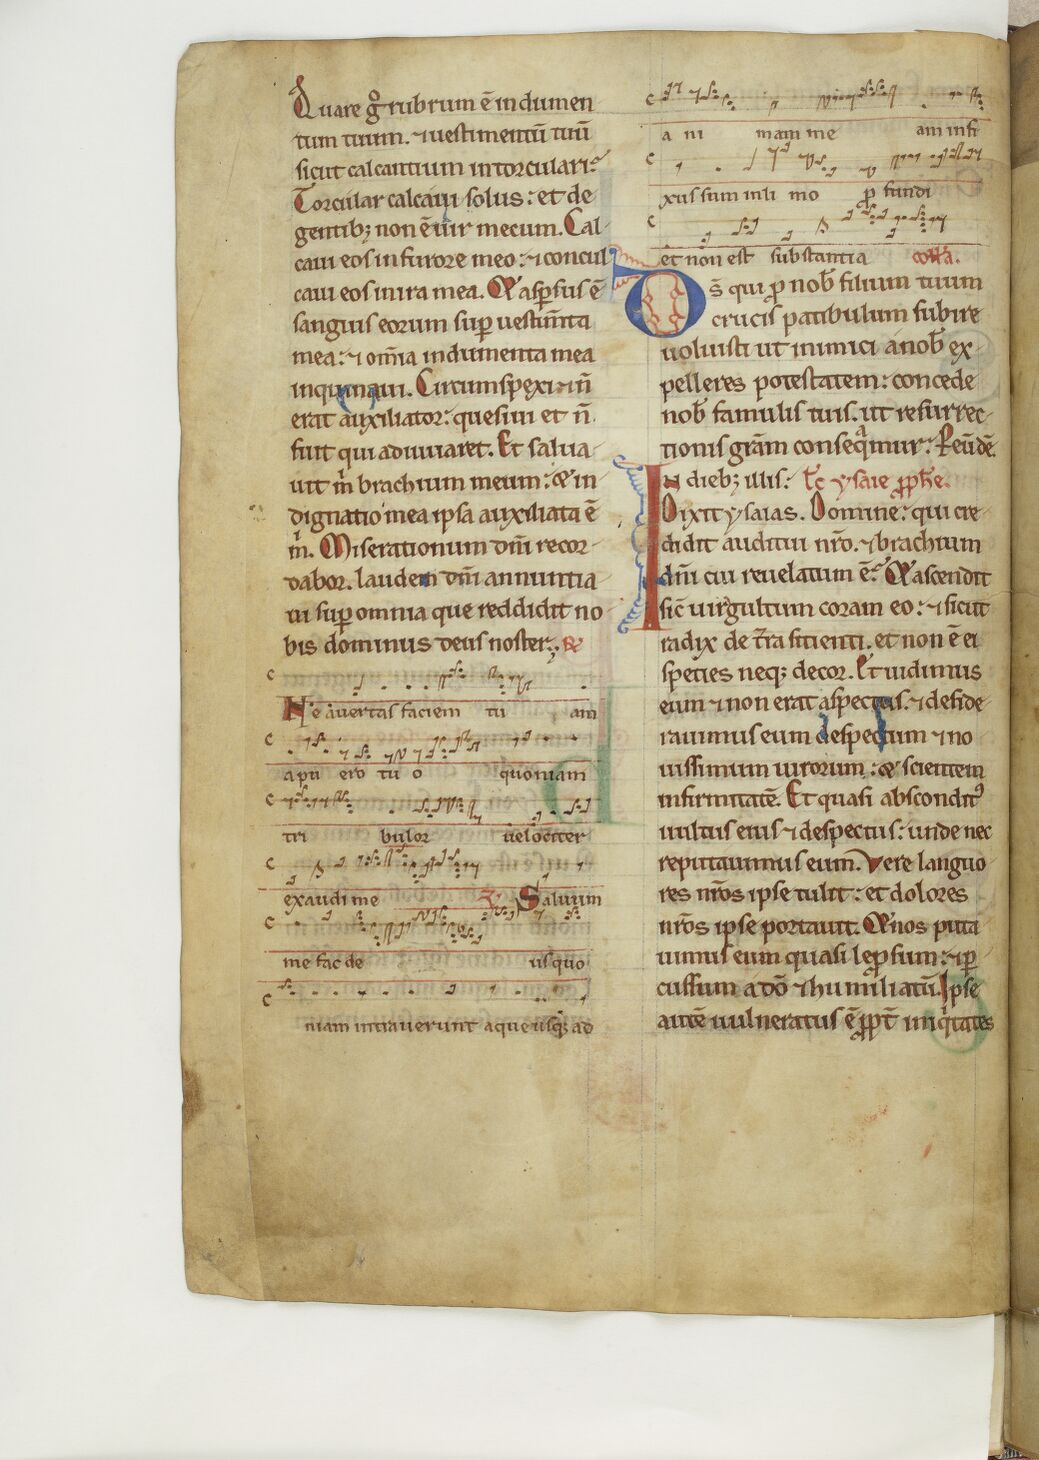 Quare g̊ rubrum ē indumen
tum tuum. ⁊ uestimentū tuū
sicut calcantium in torculari?
Torcular calcaui solus: et de
gentibꝫ non ē uir mecum. Cal
caui eos in furore meo: ⁊ concul
caui eos in ira mea. Et aspsus ē
sanguis eorum sup uestim̄ta
mea: ⁊ om̄ia indumenta mea
inquinaui. Circumspexi ⁊ n̄
erat auxiliator: quesiui et n̄
fuit qui adiuuaret. Et salua
uit m̄ brachium meum: & in
dignatio mea ipsa auxiliata ē
m̄. Miserationum dn̄i recor
dabor. laudem dn̄i annuntia
bi sup omnia que reddidit no
bis dominus deus noster;
Ne auertas faciem tu am
a pu ero tu o quoniam
tri bulor uelociter
exaudi me Saluum
me fac de us quo
niam intrauerunt aque usqꝫ ad
a ni mam me am infi
xus sum in li mo pro fundi
et non est substantia coll̄a.
Ds̄ qui ꝓ nob̄ filium tuum
crucis patibulum subire
uoluisti ut inimici a nob̄ ex
pelleres potestatem: concede
nob̄ famulis tuis. ut resurrec
tionis grām conseqͣmur. P eūdē.
In diebꝫ illis: Lc̄ ysaie ꝓph̄e.
Dixit ysaias. Domine: quis cre
didit auditui nr̄o. ⁊ brachium
dn̄i cui reuelatum ē? Et ascendit
sic̄ uirgultum coram eo: ⁊ sicut
radix de t̄ra sitienti. et non ē ei
species neqꝫ decor. Et uidimus
eum ⁊ non erat aspectus. ⁊ deside
rauimus eum despectum ⁊ no
uissimum uirorum: & scientem
infirmitatē. Et quasi absconditꝰ
uultus eius ⁊ despectus: unde nec
reputauimus eum. Vere languo
res nr̄os ipse tulit: et dolores
nr̄os ipse portauit. Et nos puta
uimus eum quasi leprosum: ⁊ p̄
cussum a dō ⁊ humiliatū. Ipse
autē uulneratus ē ꝓpt̄ iniqͥtates